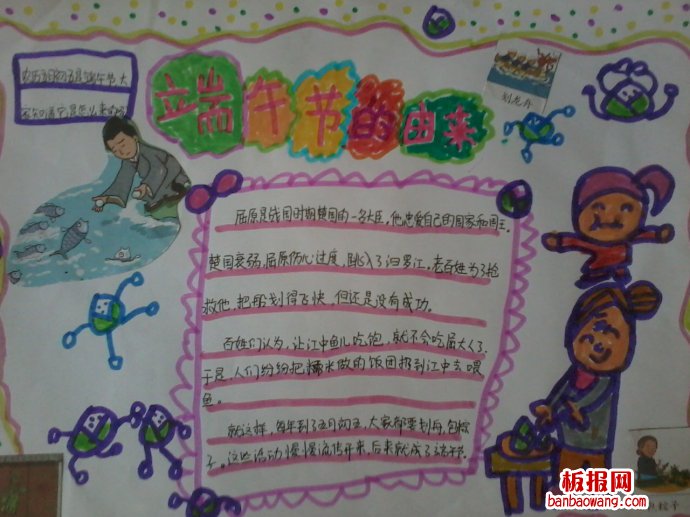 农历五月初五是端午节大
端午节的由来
划龙舟
屈原是战国时期楚国的一名大臣，他忠爱自己的国家和国王。
楚国衰弱，屈原伤心过度，跳入了汨罗江，老百姓为了抢
救他，把船划得飞快，但还是没有成功。
百姓们认为，让江中鱼儿吃饱，就不会吃屈大人了，
于是，人们纷纷把糯米做的饭团扔到江中去喂
鱼。
就这样，每年到了五月初五，大家都要划舟，包粽
子。这些活动慢慢流传开来，后来就成了端午节。
粽子
板报网
banbaowang.com